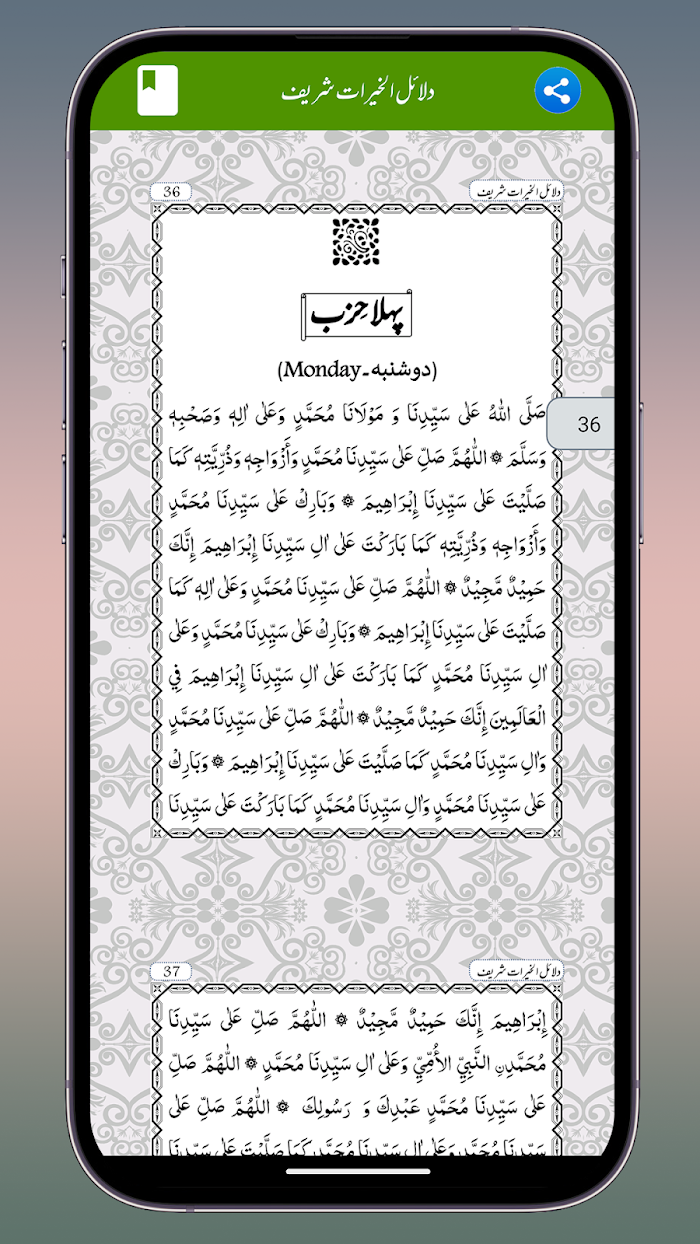 دلائل الخیرات شریف
36
دلائل الخیرات شریف
پہلا حِزب
(دوشنبہ۔Monday)
صَلَّی اللهُ عَلٰی سَیِّدِنَا وَ مَوْلَانَا مُحَمَّدٍ وَعَلٰی اٰلِهٖ وَصَحْبِهٖ
36
وَسَلَّمَ ۞ اللّٰهُمَّ صَلِّ عَلٰی سَیِّدِنَا مُحَمَّدٍ وَأَزْوَاجِهٖ وَذُرِّیَّتِهٖ كَمَا
صَلَّیْتَ عَلٰی سَیِّدِنَا إِبْرَاهِیمَ ۞ وَبَارِكْ عَلٰی سَیِّدِنَا مُحَمَّدٍ
وَأَزْوَاجِهٖ وَذُرِّیَّتِهٖ كَمَا بَارَكْتَ عَلٰی اٰلِ سَیِّدِنَا إِبْرَاهِیمَ إِنَّكَ
حَمِیْدٌ مَّجِیْدٌ ۞ اللّٰهُمَّ صَلِّ عَلٰی سَیِّدِنَا مُحَمَّدٍ وَعَلٰی اٰلِهٖ كَمَا
صَلَّیْتَ عَلٰی سَیِّدِنَا إِبْرَاهِیمَ ۞ وَبَارِكْ عَلٰی سَیِّدِنَا مُحَمَّدٍ وَعَلٰی
اٰلِ سَیِّدِنَا مُحَمَّدٍ كَمَا بَارَكْتَ عَلٰی اٰلِ سَیِّدِنَا إِبْرَاهِیمَ فِي
الْعَالَمِینَ إِنَّكَ حَمِیْدٌ مَّجِیْدٌ ۞ اللّٰهُمَّ صَلِّ عَلٰی سَیِّدِنَا مُحَمَّدٍ
وَاٰلِ سَیِّدِنَا مُحَمَّدٍ كَمَا صَلَّیْتَ عَلٰی سَیِّدِنَا إِبْرَاهِیمَ ۞ وَبَارِكْ
عَلٰی سَیِّدِنَا مُحَمَّدٍ وَاٰلِ سَیِّدِنَا مُحَمَّدٍ كَمَا بَارَكْتَ عَلٰی سَیِّدِنَا
37
دلائل الخیرات شریف
إِبْرَاهِیمَ إِنَّكَ حَمِیْدٌ مَّجِیْدٌ ۞ اللّٰهُمَّ صَلِّ عَلٰی سَیِّدِنَا
مُحَمَّدِنِ النَّبِيِّ الأُمِّيِّ وَعَلٰی اٰلِ سَیِّدِنَا مُحَمَّدٍ ۞ اللّٰهُمَّ صَلِّ
عَلٰی سَیِّدِنَا مُحَمَّدٍ عَبْدِكَ وَ رَسُولِكَ ۞ اللّٰهُمَّ صَلِّ عَلٰی
سَیِّدِنَا مُحَمَّدٍ وَعَلٰی اٰلِ سَیِّدِنَا مُحَمَّدٍ كَمَا صَلَّیْتَ عَلٰی سَیِّدِنَا